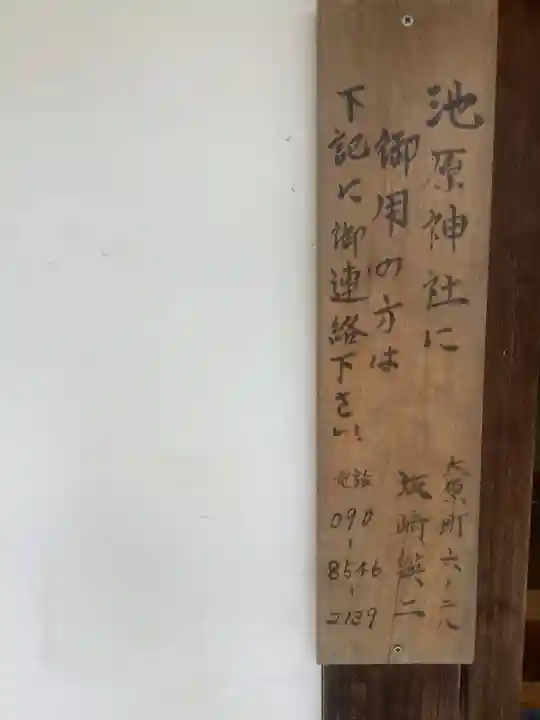 池原神社に
御用の方は
下記に御連絡下さい
大原町六ノ元
坂崎英二
電話
090-8546-2139